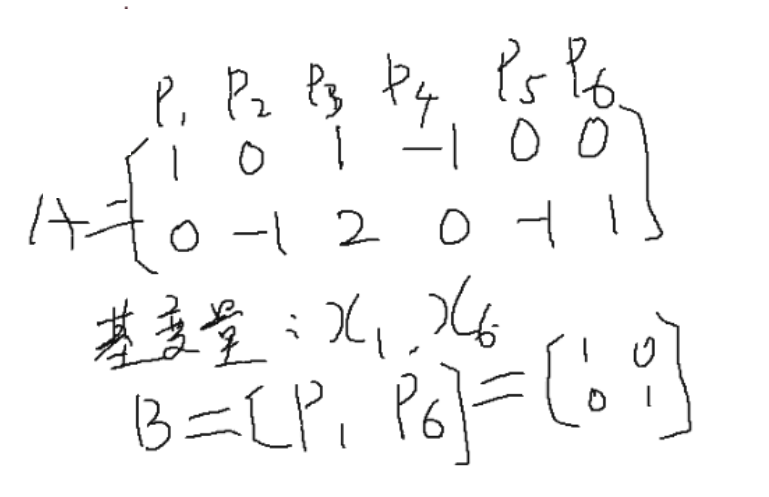 P₁ P₂ P₃ P₄ P₅ P₆
1 0 1 -1 0 0
A=
0 -1 2 0 -1 1
基变量:x₁,x₆
B=[P₁ P₆]=[1 0
0 1]